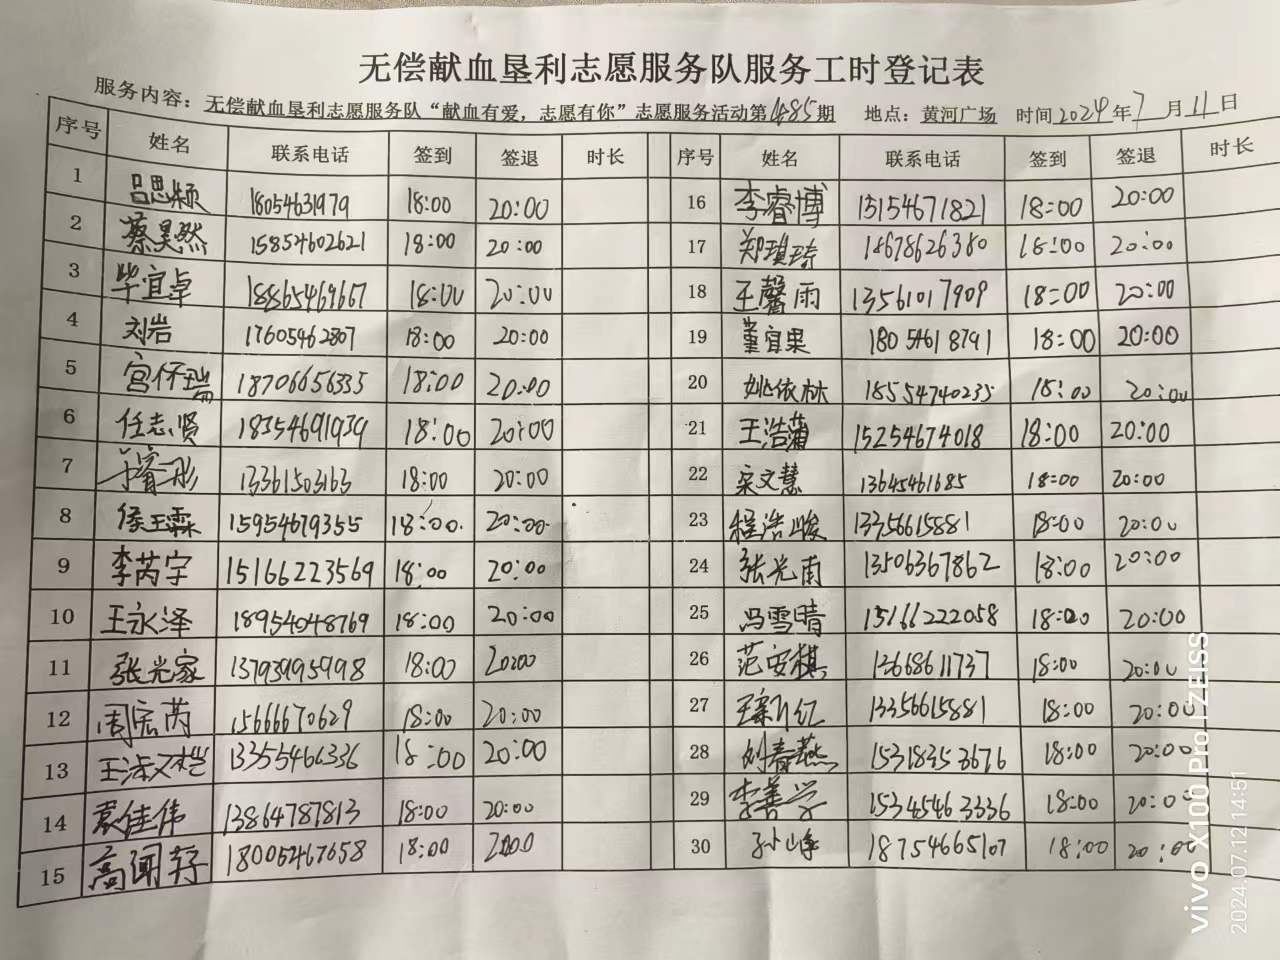 无偿献血垦利志愿服务队服务工时登记表
服务内容：无偿献血垦利志愿服务队“献血有爱，志愿有你”志愿服务活动第1485期 地点：黄河广场 时间2024年7月11日
序号 姓名 联系电话 签到 签退 时长 序号 姓名 联系电话 签到 签退 时长
1 吕思颖 18054631979 18:00 20:00 16 李睿博 13154671821 18:00 20:00
2 蔡昊然 15854602621 18:00 20:00 17 郑琪琦 18678626380 18:00 20:00
3 毕宜卓 18865469667 18:00 20:00 18 王馨雨 13561017909 18:00 20:00
4 刘岩 17605462807 18:00 20:00 19 董宜果 18054618791 18:00 20:00
5 宫怀瑞 18706656335 18:00 20:00 20 姚依林 18554740235 18:00 20:00
6 任志贤 18354691939 18:00 20:00 21 王浩蒲 15254674018 18:00 20:00
7 于睿彤 13361503163 18:00 20:00 22 宋文慧 13645461685 18:00 20:00
8 侯玉霖 15954679355 18:00 20:00 23 程浩峻 13356615881 18:00 20:00
9 李芮宇 15166223569 18:00 20:00 24 张光雨 13506367862 18:00 20:00
10 王永泽 18954048769 18:00 20:00 25 冯雪晴 15166222058 18:00 20:00
11 张光家 13793995998 18:00 20:00 26 范安棋 13668611737 18:00 20:00
12 周宏芮 15666670629 18:00 20:00 27 王新红 13356615881 18:00 20:00
13 王 13355466336 18:00 20:00 28 刘春燕 15318353676 18:00 20:00
14 袁佳伟 13864787813 18:00 20:00 29 李善学 15345463336 18:00 20:00
15 高闻轩 18005467658 18:00 20:00 30 孙峰 18754665107 18:00 20:00
vivo X100 Pro | ZEISS
2024.07.12 14:51